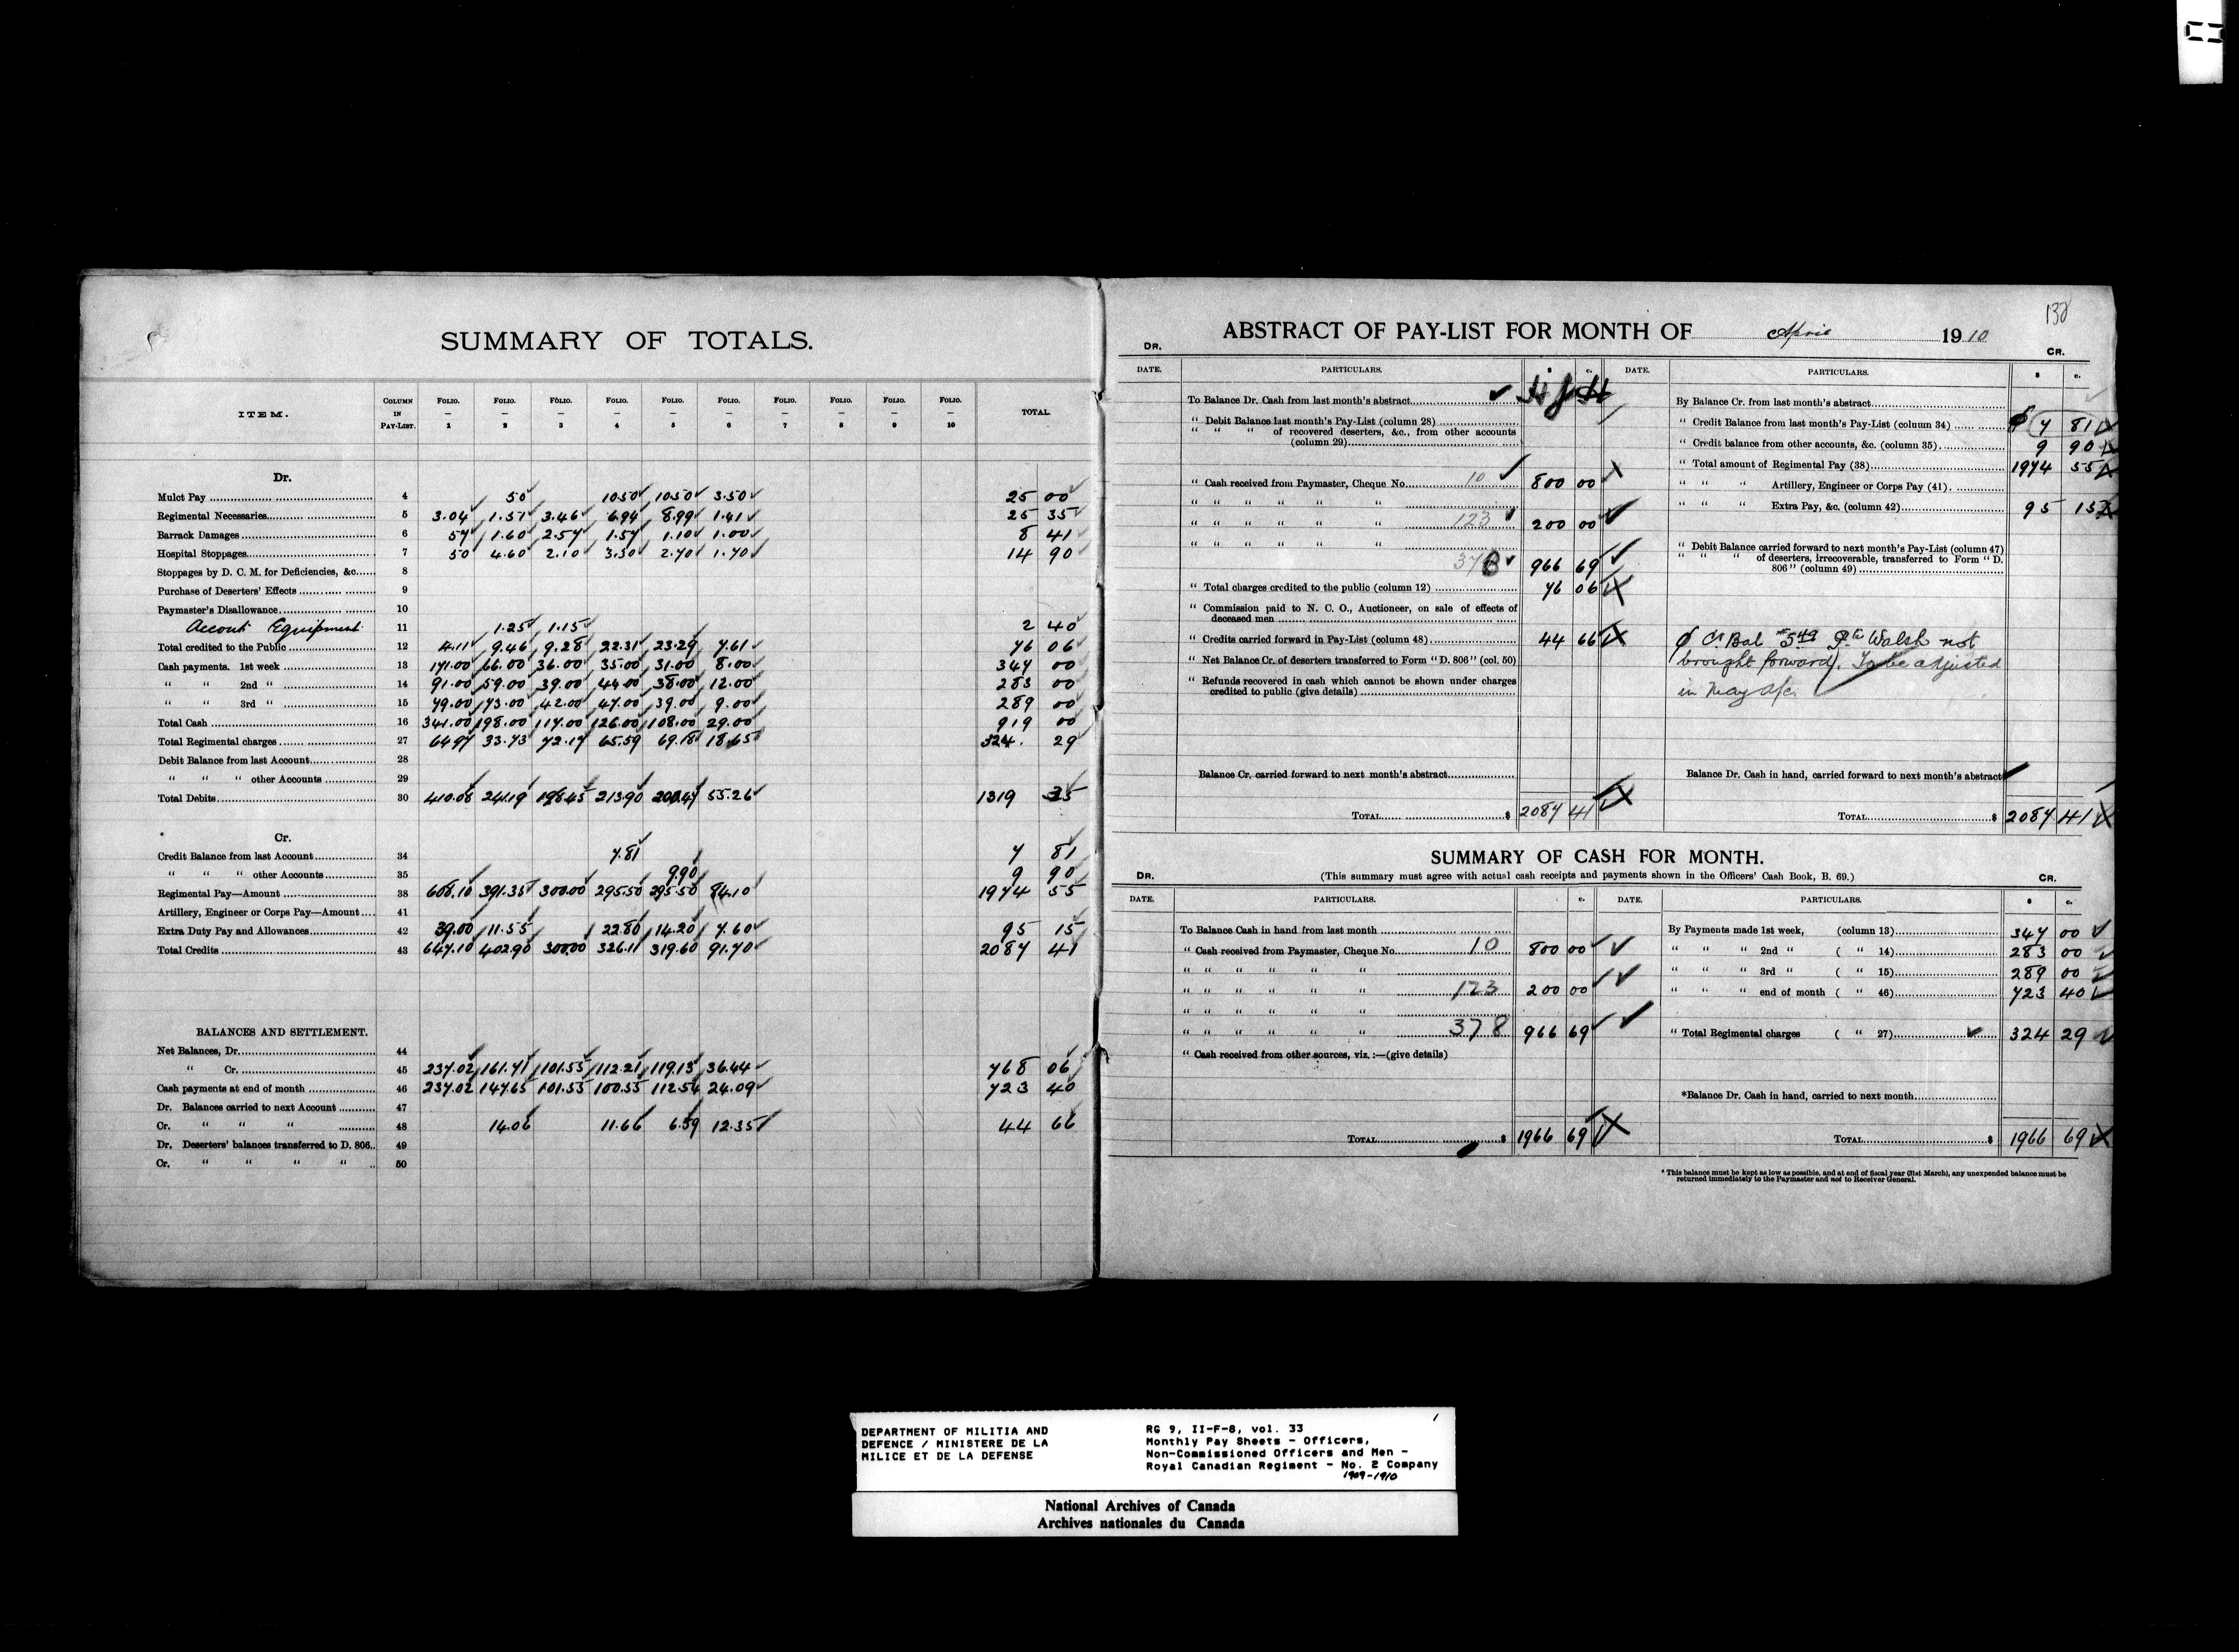 SUMMARY OF TOTALS.
ITEM. COLUMN IN PAY-LIST. FOLIO. — 1 FOLIO. — 2 FOLIO. — 3 FOLIO. — 4 FOLIO. — 5 FOLIO. — 6 FOLIO. — 7 FOLIO. — 8 FOLIO. — 9 FOLIO. — 10 TOTAL
Dr.
Mulct Pay 4 50 10.50 10.50 3.50 25 00
Regimental Necessaries 5 3.04 1.51 3.46 6.94 8.99 1.41 25 35
Barrack Damages 6 57 1.60 2.57 1.57 1.10 1.00 8 41
Hospital Stoppages 7 50 4.60 2.10 3.30 2.70 1.70 14 90
Stoppages by D. C. M. for Deficiencies, &c. 8
Purchase of Deserters' Effects 9
Paymaster's Disallowance 10
Accout Equipment 11 1.25 1.15 2 40
Total credited to the Public 12 4.11 9.46 9.28 22.31 23.29 7.61 76 06
Cash payments. 1st week 13 171.00 66.00 36.00 35.00 31.00 8.00 347 00
" " 2nd " 14 91.00 59.00 39.00 44.00 38.00 12.00 283 00
" " 3rd " 15 79.00 73.00 42.00 47.00 39.00 9.00 289 00
Total Cash 16 341.00 198.00 117.00 126.00 108.00 29.00 919 00
Total Regimental charges 27 64.97 33.73 72.17 65.59 69.18 18.65 324. 29
Debit Balance from last Account 28
" " " other Accounts 29
Total Debits 30 410.08 241.19 198.45 213.90 200.47 55.26 1319 35
Cr.
Credit Balance from last Account 34 7.81 7 81
" " " other Accounts 35 9.90 9 90
Regimental Pay—Amount 38 608.10 391.35 300.00 295.50 295.50 84.10 1974 55
Artillery, Engineer or Corps Pay—Amount 41
Extra Duty Pay and Allowances 42 39.00 11.55 22.80 14.20 7.60 95 15
Total Credits 43 647.10 402.90 300.00 326.11 319.60 91.70 2087 41
BALANCES AND SETTLEMENT.
Net Balances, Dr. 44
" Cr. 45 237.02 161.71 101.55 112.21 119.13 36.44 768 06
Cash payments at end of month 46 237.02 147.65 101.55 100.55 112.54 24.09 723 40
Dr. Balances carried to next Account 47
Cr. " " " 48 14.06 11.66 6.59 12.35 44 66
Dr. Deserters' balances transferred to D. 806 49
Cr. " " " " 50
138
ABSTRACT OF PAY-LIST FOR MONTH OF April 1910
DR. CR.
DATE. PARTICULARS. $ c. DATE. PARTICULARS. $ c.
To Balance Dr. Cash from last month's abstract
" Debit Balance last month's Pay-List (column 28)
" " " of recovered deserters, &c., from other accounts (column 29)
" Cash received from Paymaster, Cheque No. 10 800 00
" " " " " "
" " " " " " 123 200 00
" " " " " "
378 966 69
" Total charges credited to the public (column 12) 76 06
" Commission paid to N. C. O., Auctioneer, on sale of effects of
deceased men
" Credits carried forward in Pay-List (column 48) 44 66
" Net Balance Cr. of deserters transferred to Form "D. 806" (col. 50)
" Refunds recovered in cash which cannot be shown under charges
credited to public (give details)
Balance Cr. carried forward to next month's abstract
TOTAL $ 2087 41
By Balance Cr. from last month's abstract
" Credit Balance from last month's Pay-List (column 34) 7 81
" Credit balance from other accounts, &c. (column 35) 9 90
" Total amount of Regimental Pay (38) 1974 55
" " " Artillery, Engineer or Corps Pay (41).
" " " Extra Pay, &c. (column 42) 95 15
" Debit Balance carried forward to next month's Pay-List (column 47)
" " " of deserters, irrecoverable, transferred to Form "D.
806" (column 49)
Cr Bal #549 Pte Walsh not
brought forward). To be adjusted
in May a/c.
Balance Dr. Cash in hand, carried forward to next month's abstract
TOTAL $ 2087 41
SUMMARY OF CASH FOR MONTH.
(This summary must agree with actual cash receipts and payments shown in the Officers' Cash Book, B. 69.)
DR. CR.
DATE. PARTICULARS. c. DATE. PARTICULARS. $ c.
To Balance Cash in hand from last month
" Cash received from Paymaster, Cheque No. 10 800 00
" " " " " "
" " " " " " 123 200 00
" " " " " "
" " " " " " 378 966 69
" Cash received from other sources, viz. :—(give details)
TOTAL $ 1966 69
By Payments made 1st week, (column 13) 347 00
" " " 2nd " ( " 14) 283 00
" " " 3rd " ( " 15) 289 00
" " " end of month ( " 46) 723 40
" Total Regimental charges ( " 27) 324 29
*Balance Dr. Cash in hand, carried to next month
TOTAL $ 1966 69
* This balance must be kept as low as possible, and at end of fiscal year (31st March), any unexpended balance must be
returned immediately to the Paymaster and not to Receiver General.
DEPARTMENT OF MILITIA AND
DEFENCE / MINISTERE DE LA
MILICE ET DE LA DEFENSE
RG 9, II-F-8, vol. 33
Monthly Pay Sheets - Officers,
Non-Commissioned Officers and Men -
Royal Canadian Regiment - No. 2 Company
1909-1910
National Archives of Canada
Archives nationales du Canada